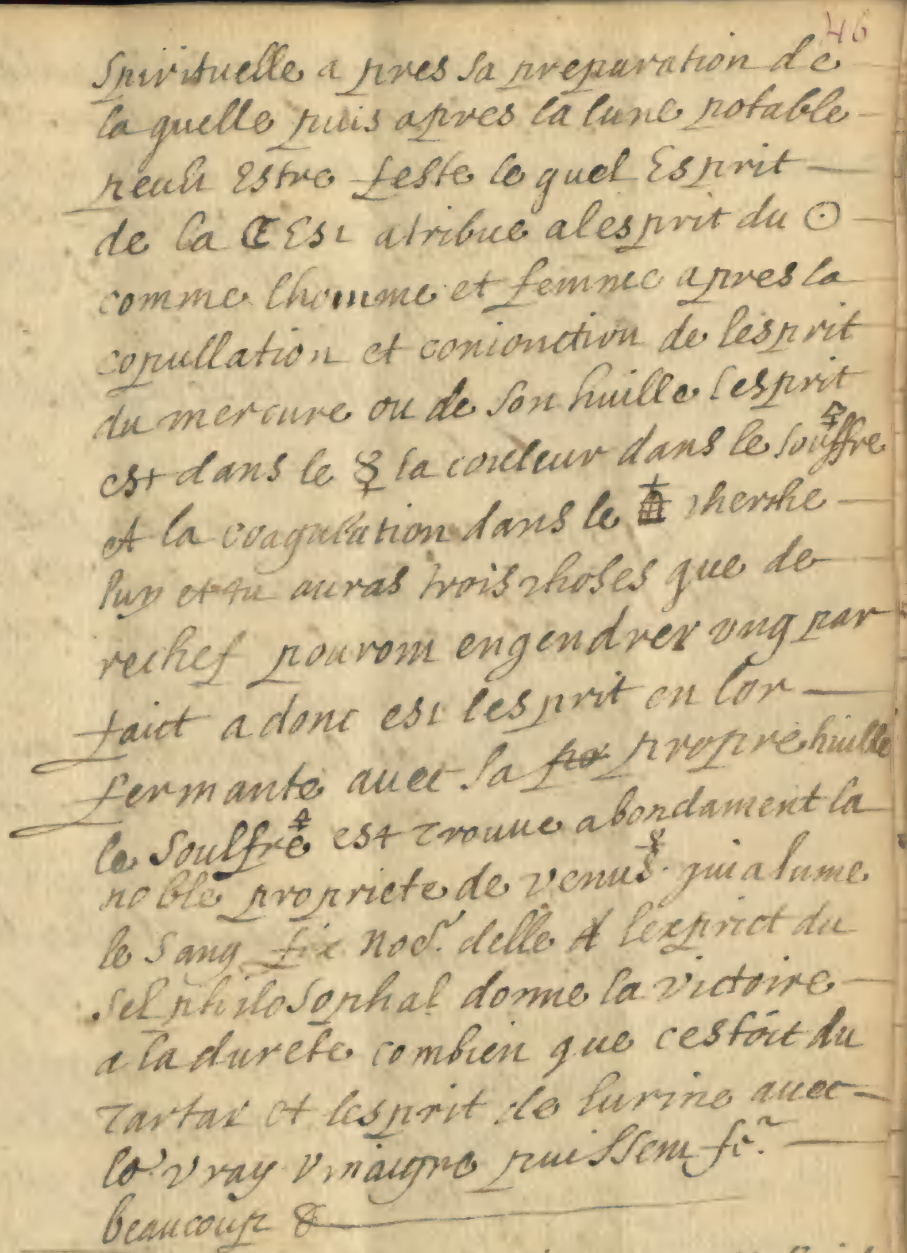 46
Spirituelle a pres sa preparation de
la quelle puis apres la lune potable
peult Estre feste le quel Esprit
de la ☾ Est atribue alesprit du ☉
comme lhomme et femme apres la
copullation et conionction de lesprit
du mercure ou de son huille lesprit
est dans le ☿ la couleur dans le souffre 🜍
et la coagulation dans le cherche
luy et tu auras trois choses que de
rechef pourom engendrer ung par
faict adonc est lesprit en lor
fermante avec sa propre huille
le Soulfre 🜍 est trouve abondament la
noble propriete de venus ♀ qui alume
le sang fix delle et lexprict du
sel philosophal donne la victoire
a la durete combien que cestoit du
tartar et lesprit de lurine avec
le vray vinaigre puissem fe.
beaucoup &